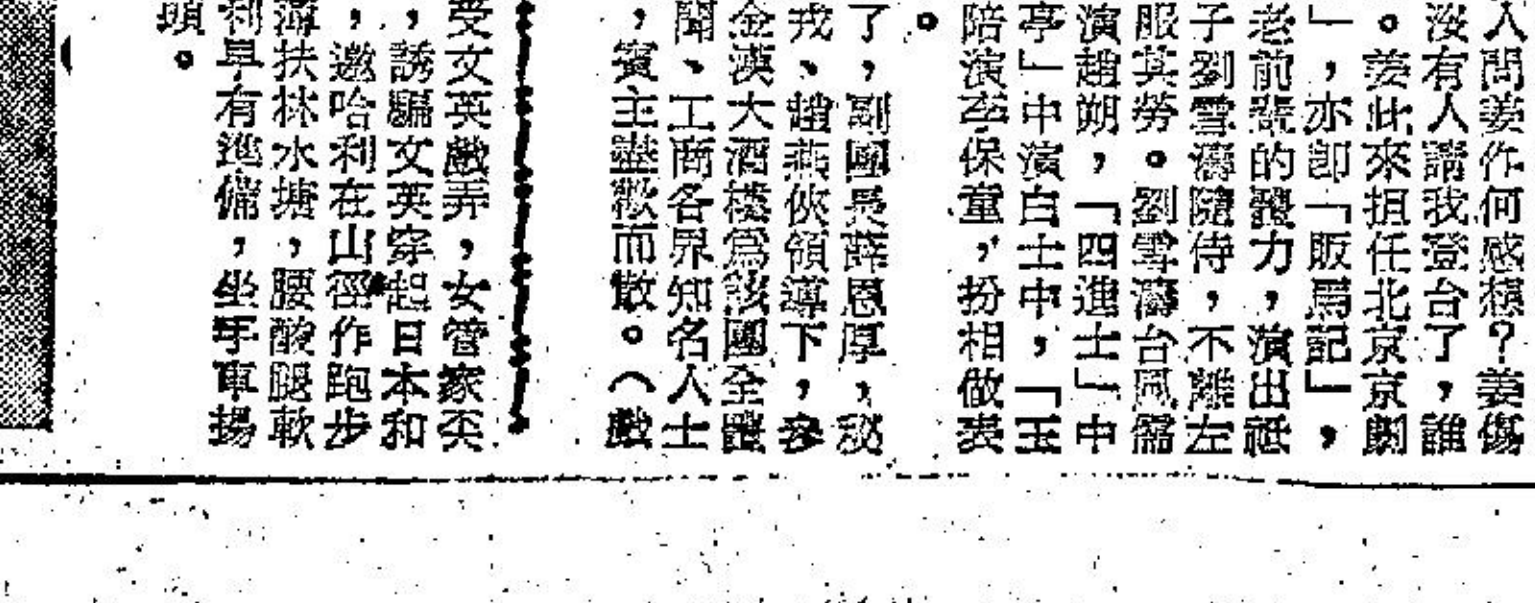 人問姜作何感想？姜傷
沒有人請我登台了，誰
。姜此來担任北京京劇
」，亦即「販馬記」，
老前輩的發力，演出祗
子劉雪濤隨侍，不離左
服其勞。劉雪濤台風儒
演趙朔，「四進士」中
亭」中演白士中，「玉
陪演李保童，扮相做表
。
了，副團長薛恩厚，秘
戎、趙燕俠領導下，參
金漢大酒樓爲該團全體
聞、工商各界知名人士
，賓主盡歡而散。（戲
受文英戲弄，女管家炎
，誘騙文英穿起日本和
，邀哈利在山徑作跑步
扶林水塘，腰酸腿軟
利早有準備，坐手車揚
頭。